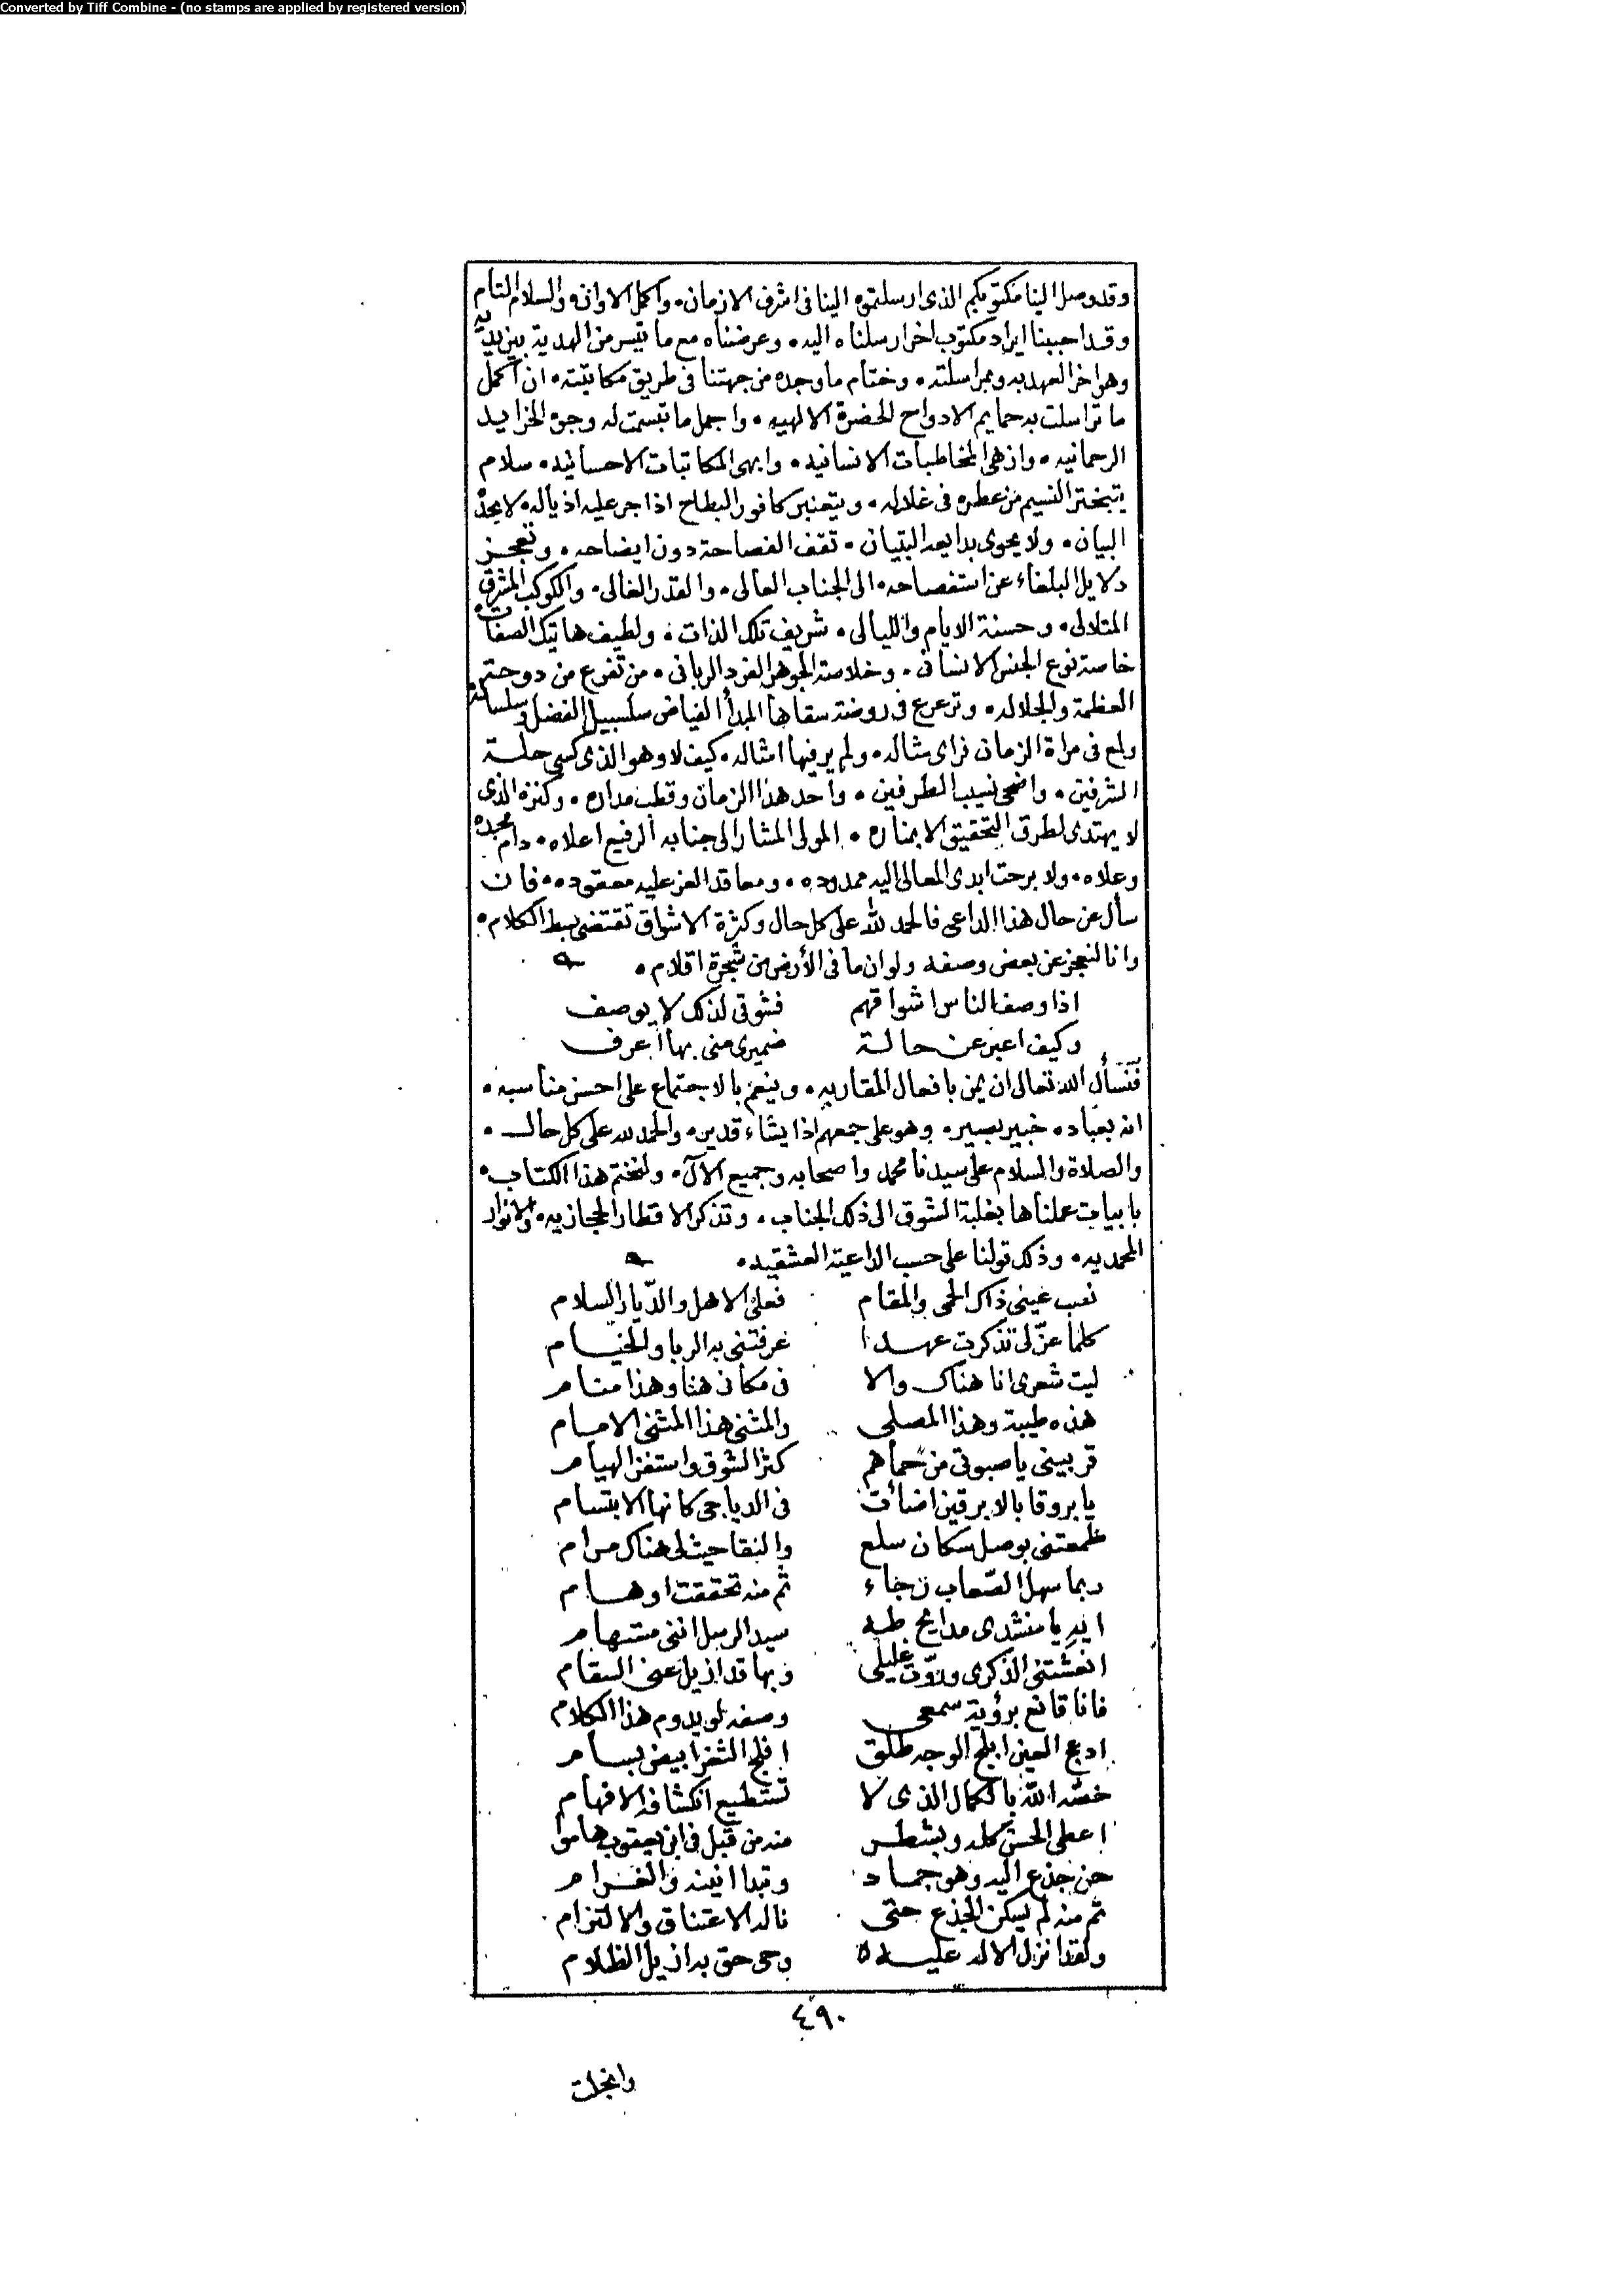 Converted by Tiff Combine - (no stamps are applied by registered version)
وقد وصل الينا مكتوبكم الذى ارسلتموه الينا فى اشرف الازمان، واكمل الاوان، والسلام التام
وقد احببنا ايراد مكتوب اخر ارسلناه اليه، وعرضناه مع ما تيسر من الهدية بين يديه
وهو اخر العهد به وبمراسلته، وختام ما وجد من جهتنا فى طريق مكاتبته، ان اكمل
ما تراسلت به حمايم الادواح الحضرة الالهيه، واجمل ما تبسمت له وجوه الخرايد
الرحمانيه، وازهى المخاطبات الانسانيه، وابهى المكاتبات الاحسانيه، سلام
يتبختر النسيم من عطره فى غلاله، ويتعنبر كافور البطاح اذا جر عليه اذياله، لا يحده
البيان، ولا يحوى بدايعه التبيان، تقف الفصاحة دون ايضاحه، وتعجز
دلايل البلغاء عن استفصاحه، الى الجناب العالى، والقدر الغالى، والكوكب المشرق
المتلالى، وحسنة الايام والليالى، شريف تلك الذات، ولطيف هاتيك الصفات
خاصة نوع الجنس الانسانى، وخلاصة الجوهر الفرد الربانى، من تفرع من دوحة
العظمة والجلاله، وترعرع فى روضة سقاها المبدأ الفياض سلسبيل الفضل وسلساله
ولمع فى مراة الزمان فراى مثاله، ولم ير فيها امثاله، كيف لا وهو الذى كسى حلة
الشرفين، واضحى نسيب الطرفين، واحد هذا الزمان وقطب مداره، وكنزه الذى
لا يهتدى لطرق التحقيق الا بمناره، المولى المشار الى جنابه الرفيع اعلاه، دام مجده
وعلاه، ولا برحت ايدى المعالى اليه ممدوده، ومعاقد العز عليه معقوده، فان
سأل عن حال هذا الداعى فالحمد لله على كل حال وكثرة الاشواق تقتضى بسط الكلام،
وانا لنعجز عن بعض وصفه ولو ان ما فى الأرض من شجرة اقلام،
اذا وصف الناس اشواقهم فشوقى لذلك لا يوصف
وكيف اعبر عن حالة ضميرى منى بها أعرف
فنسأل الله تعالى ان يمن بافعال المقاربه، وينعم بالاجتماع على احسن مناسبه،
انه بعباده خبير بصير، وهو على جمعهم اذا يشاء قدير، والحمد لله على كل حال،
والصلاة والسلام على سيدنا محمد واصحابه وجميع الآل، ولنختم هذا الكتاب،
بابيات عملناها بغلبة الشوق الى ذلك الجناب، وتذكر الاقطار الحجازيه، والانوار
المحمديه، وذلك قولنا على حسب الداعية العشقيه،
نصب عينى ذاك الحمى والمقام فعلى الاهل والديار السلام
كلما عنّ لى تذكرت عهدا عرفتنى به الربا والخيام
ليت شعرى انا هناك والا فى مكانى هنا وهذا منام
هذه طيبة وهذا المصلى والمثنى هذا المثنى الامام
قربينى يا صبوتى من حماهم كثر الشوق واستفز الهيام
يا بروقا بالابرقين اضائت فى الدياجى كانها الابتسام
طمعتنى بوصل سكان سلع والنقا حيث لى هناك مرام
ربما سهل الصّعاب رجاء ثم منه تحققت اوهام
ايه يا منشدى مدايح طه سيد الرسل اننى مستهام
انعشتنى الذكرى وروّت غليلى وبها قد ازيل عنى السقام
فانا قانع برؤية سمعى وصفه لو يدوم هذا الكلام
ادعج العين ابلج الوجه طلق افلج الثغر ابيض بسام
خصه الله بالكمال الذى لا تستطيع انكشافه الافهام
اعطى الحسن كله وبشطر منه من قبل فى ابن يعقوب هاموا
حن جذع اليه وهو جماد وتبدا انينه والغرام
ثم منه لم يسكن الجذع حتى ناله الاعتناق والالتزام
ولقد انزل الاله عليه وحى حق به ازيل الظلام
٤٩٠
وانجلت